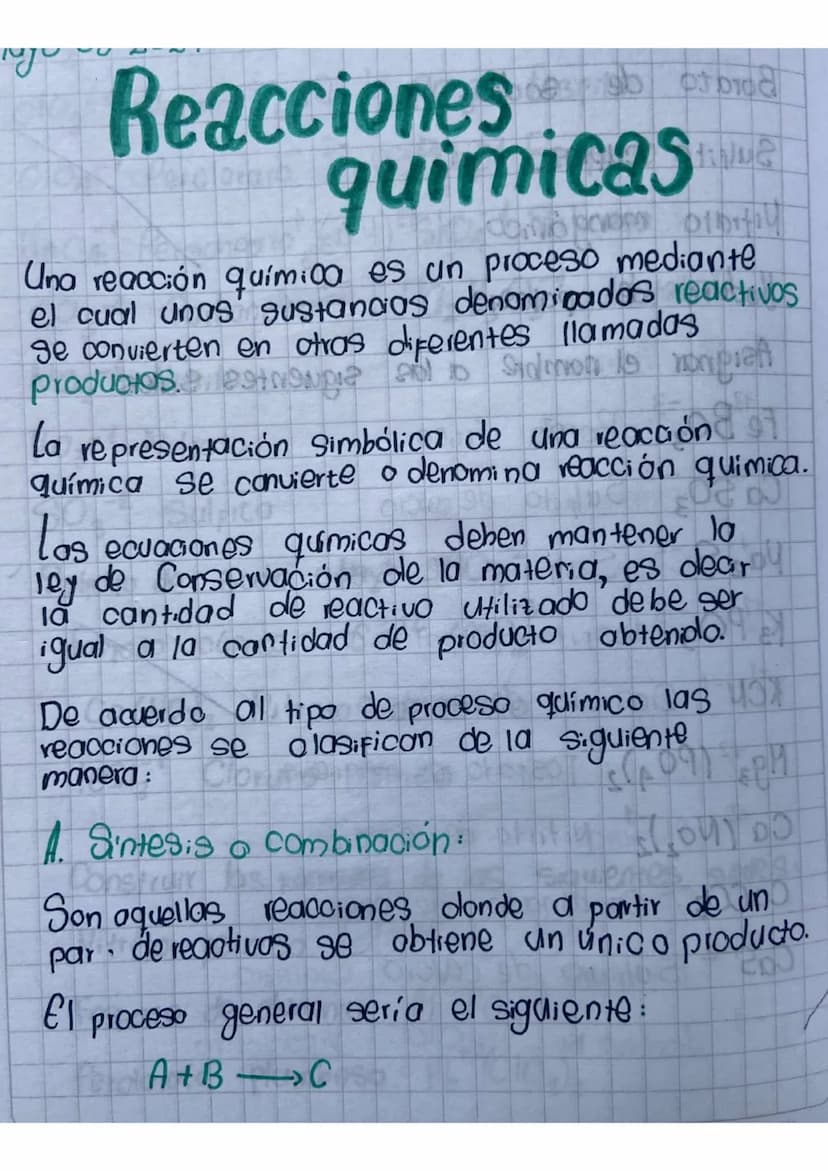 Reacciones
quimicas
Una reacción química es un proceso mediante
el cual unas sustancias denominados reactivos
se convierten en otras diferentes llamadas
productos.
La representación simbólica de una reacción
química se convierte o denomina reacción quimica.
Las ecuaciones químicas deben mantener la
ley de Conservación de la materia, es decir
la cantidad de reactivo utilizado debe ser
igual a la cantidad de producto obtenido.
De acuerdo al tipo de proceso químico las
reacciones se clasifican de la siguiente
manera:
A. Síntesis o combinación:
Son aquellas reacciones donde a partir de un
par de reactivos se obtiene un único producto.
El proceso general sería el siguiente:
A + B ⟶ C